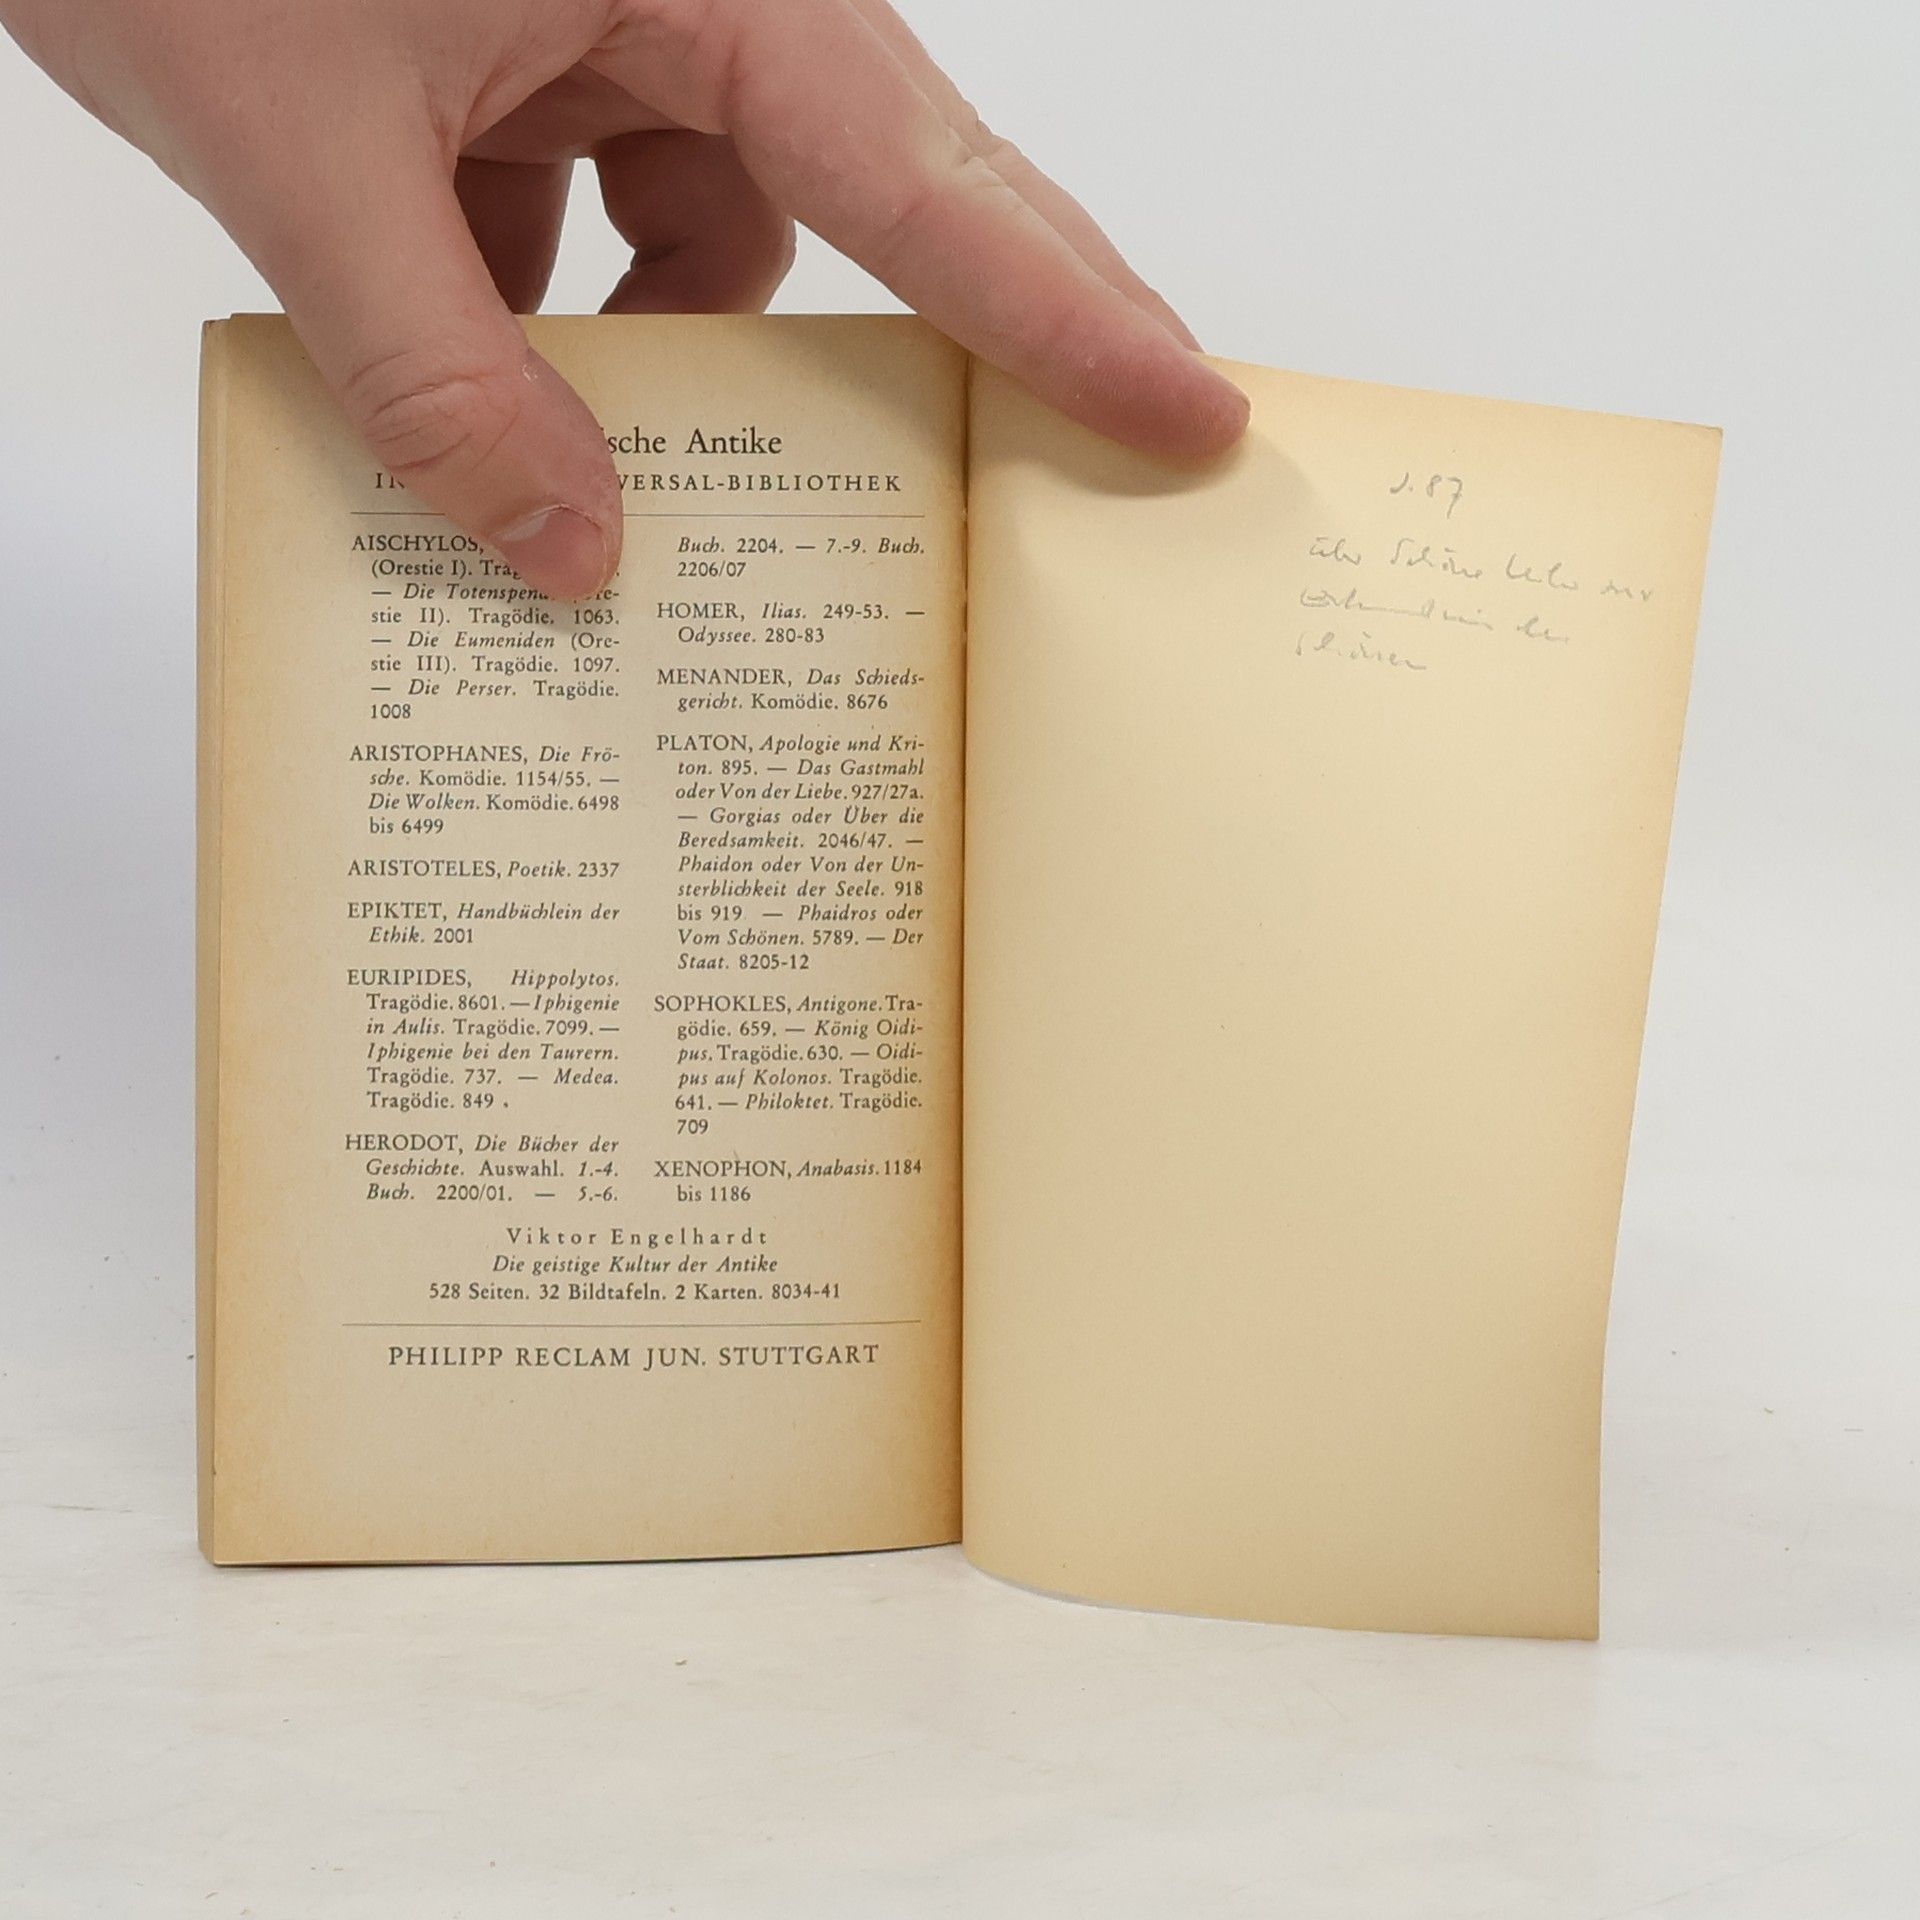 ische Antike
VERSAL-BIBLIOTHEK
AISCHYLOS,
(Orestie I).
— Die
stie II). Tragödie. 1063.
— Die Eumeniden (Ore-
stie III). Tragödie. 1097.
— Die Perser. Tragödie.
1008
ARISTOPHANES, Die Frö-
sche. Komödie. 1154/55. —
Die Wolken. Komödie. 6498
bis 6499
ARISTOTELES, Poetik. 2337
EPIKTET, Handbüchlein der
Ethik. 2001
EURIPIDES, Hippolytos.
Tragödie. 8601. — Iphigenie
in Aulis. Tragödie. 7099. —
Iphigenie bei den Taurern.
Tragödie. 737. — Medea.
Tragödie. 849 .
HERODOT, Die Bücher der
Geschichte. Auswahl. 1.-4.
Buch. 2200/01. — 5.-6.
Buch. 2204. — 7.-9. Buch.
2206/07
HOMER, Ilias. 249-53. —
Odyssee. 280-83
MENANDER, Das Schieds-
gericht. Komödie. 8676
PLATON, Apologie und Kri-
ton. 895. — Das Gastmahl
oder Von der Liebe. 927/27a.
— Gorgias oder Über die
Beredsamkeit. 2046/47. —
Phaidon oder Von der Un-
sterblichkeit der Seele. 918
bis 919 — Phaidros oder
Vom Schönen. 5789. — Der
Staat. 8205-12
SOPHOKLES, Antigone. Tra-
gödie. 659. — König Oidi-
pus. Tragödie. 630. — Oidi-
pus auf Kolonos. Tragödie.
641. — Philoktet. Tragödie.
709
XENOPHON, Anabasis. 1184
bis 1186
Viktor Engelhardt
Die geistige Kultur der Antike
528 Seiten. 32 Bildtafeln. 2 Karten. 8034-41
PHILIPP RECLAM JUN. STUTTGART
87
über Schöne